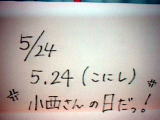 5/24
5.24(こにし)
小西さんの日だっ!